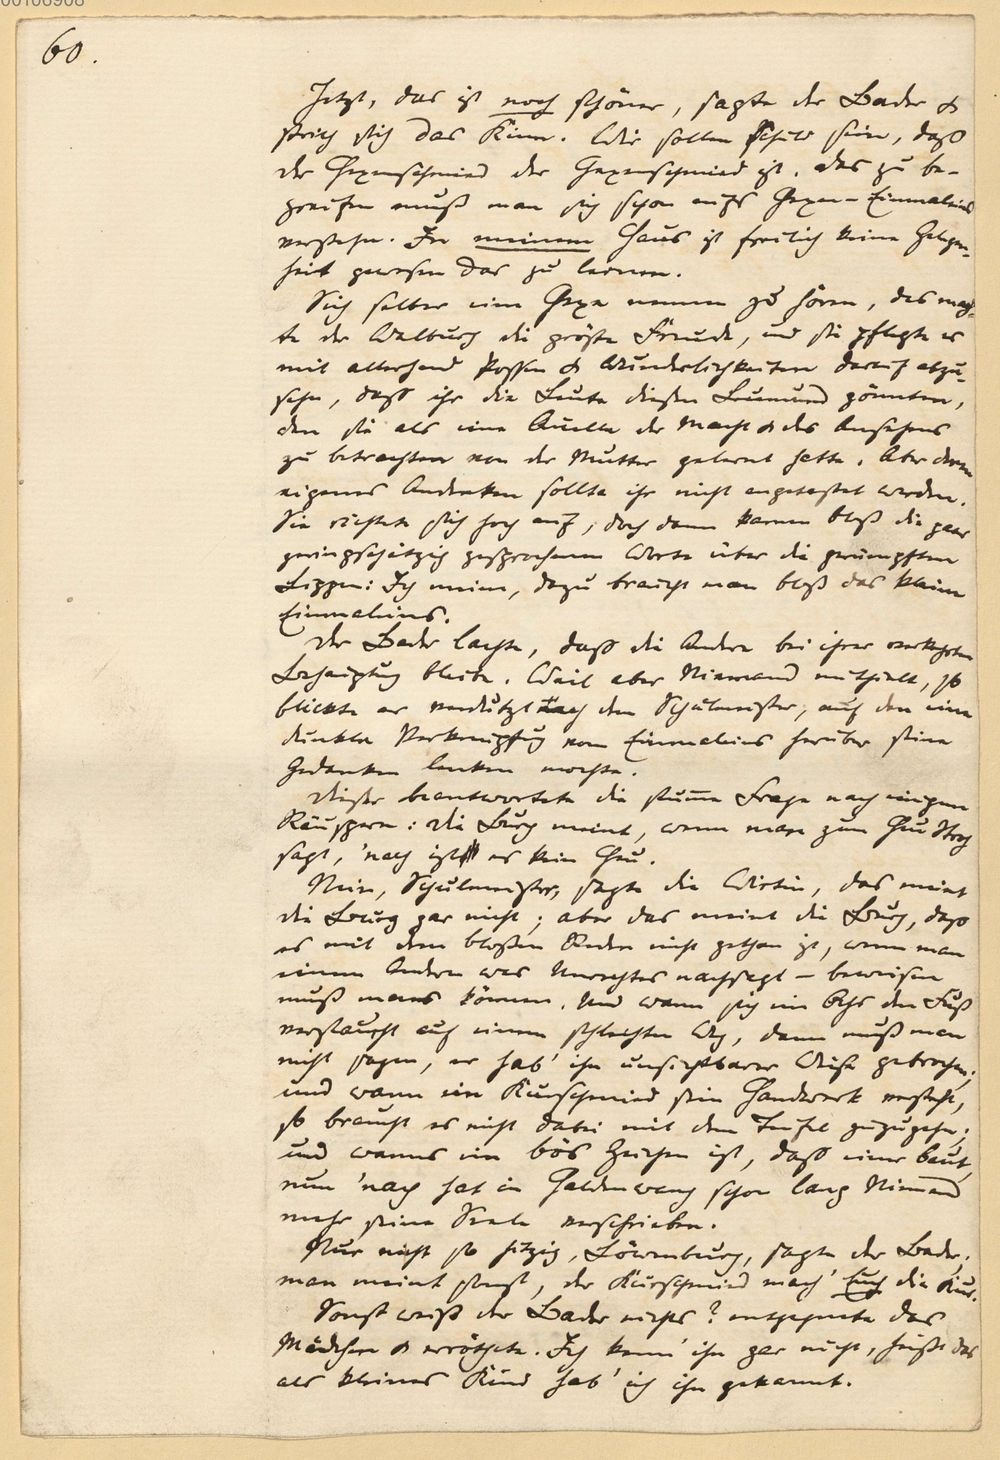 60.
Jetzt, das ist noch schöner, sagte der Bader &
strich sich das Kinn. Wir sollen Schuld sein, daß
der Hexenschmied der Hexenschmied ist. Das zu be-
greifen muß man sich schon aufs Hexen-Einmaleins
verstehn. In meinem Haus ist freilich keine Gelegen-
heit gewesen das zu lernen.
Sich selber eine Hexe nennen zu hören, das mach-
te der Walburg die größte Freude, und sie pflegte es
mit allerhand Possen & Wunderlichkeiten darauf abzu-
sehn, daß ihr die Leute diesen Leumund gönnten,
den sie als eine Quelle der Macht & des Ansehens
zu betrachten von der Mutter gelernt hatte. Aber deren
eigenes Andenken sollte ihr nicht angetastet werden.
Sie richtete sich hoch auf, doch dann kamen bloß die paar
geringschätzig gesprochenen Worte über die gerümpften
Lippen: Ich meine, dazu braucht man bloß das kleine
Einmaleins.
Der Bader lachte, daß die Andere bei ihrer verkehrten
Behauptung bleibe. Weil aber Niemand mithielt, so
blickte er verdutzt nach dem Schulmeister, auf den eine
dunkle Verknüpfung vom Einmaleins herüber seine
Gedanken lenken mochte.
Dieser beantwortete die stumme Frage nach einigem
Räuspern: Die Burg meint, wenn man zum Heu Stroh
sagt, 'nach ist es kein Heu.
Nein, Schulmeister, sagte die Wirtin, das meint
die Burg gar nicht; aber das meint die Burg, daß
es mit dem bloßen Reden nicht gethan ist, wenn man
einem Andern was Unrechtes nachsagt – beweisen
muß mans können. Und wann sich ein Ochs den Fuß
verstaucht auf einem schlechten Weg, dann muß man
nicht sagen, er hab' ihn unsichtbarer Weise gebrochen;
und wann ein Kurschmied sein Handwerk versteht,
so braucht es nicht dabei mit dem Teufel zuzugehn;
und wanns ein bös Zeichen ist, daß einer baut,
nun 'nach hat in Haldenwang schon lang Niemand
mehr seine Seele verschrieben.
Nur nicht so hitzig, Löwenburg, sagte der Bader,
man meint sonst, der Kurschmied mach' Euch die Kur.
Sonst weiß der Bader nichts? entgegnete das
Mädchen & erröthete. Ich kenn' ihn gar nicht, heißt das
als kleines Kind hab' ich ihn gekannt.